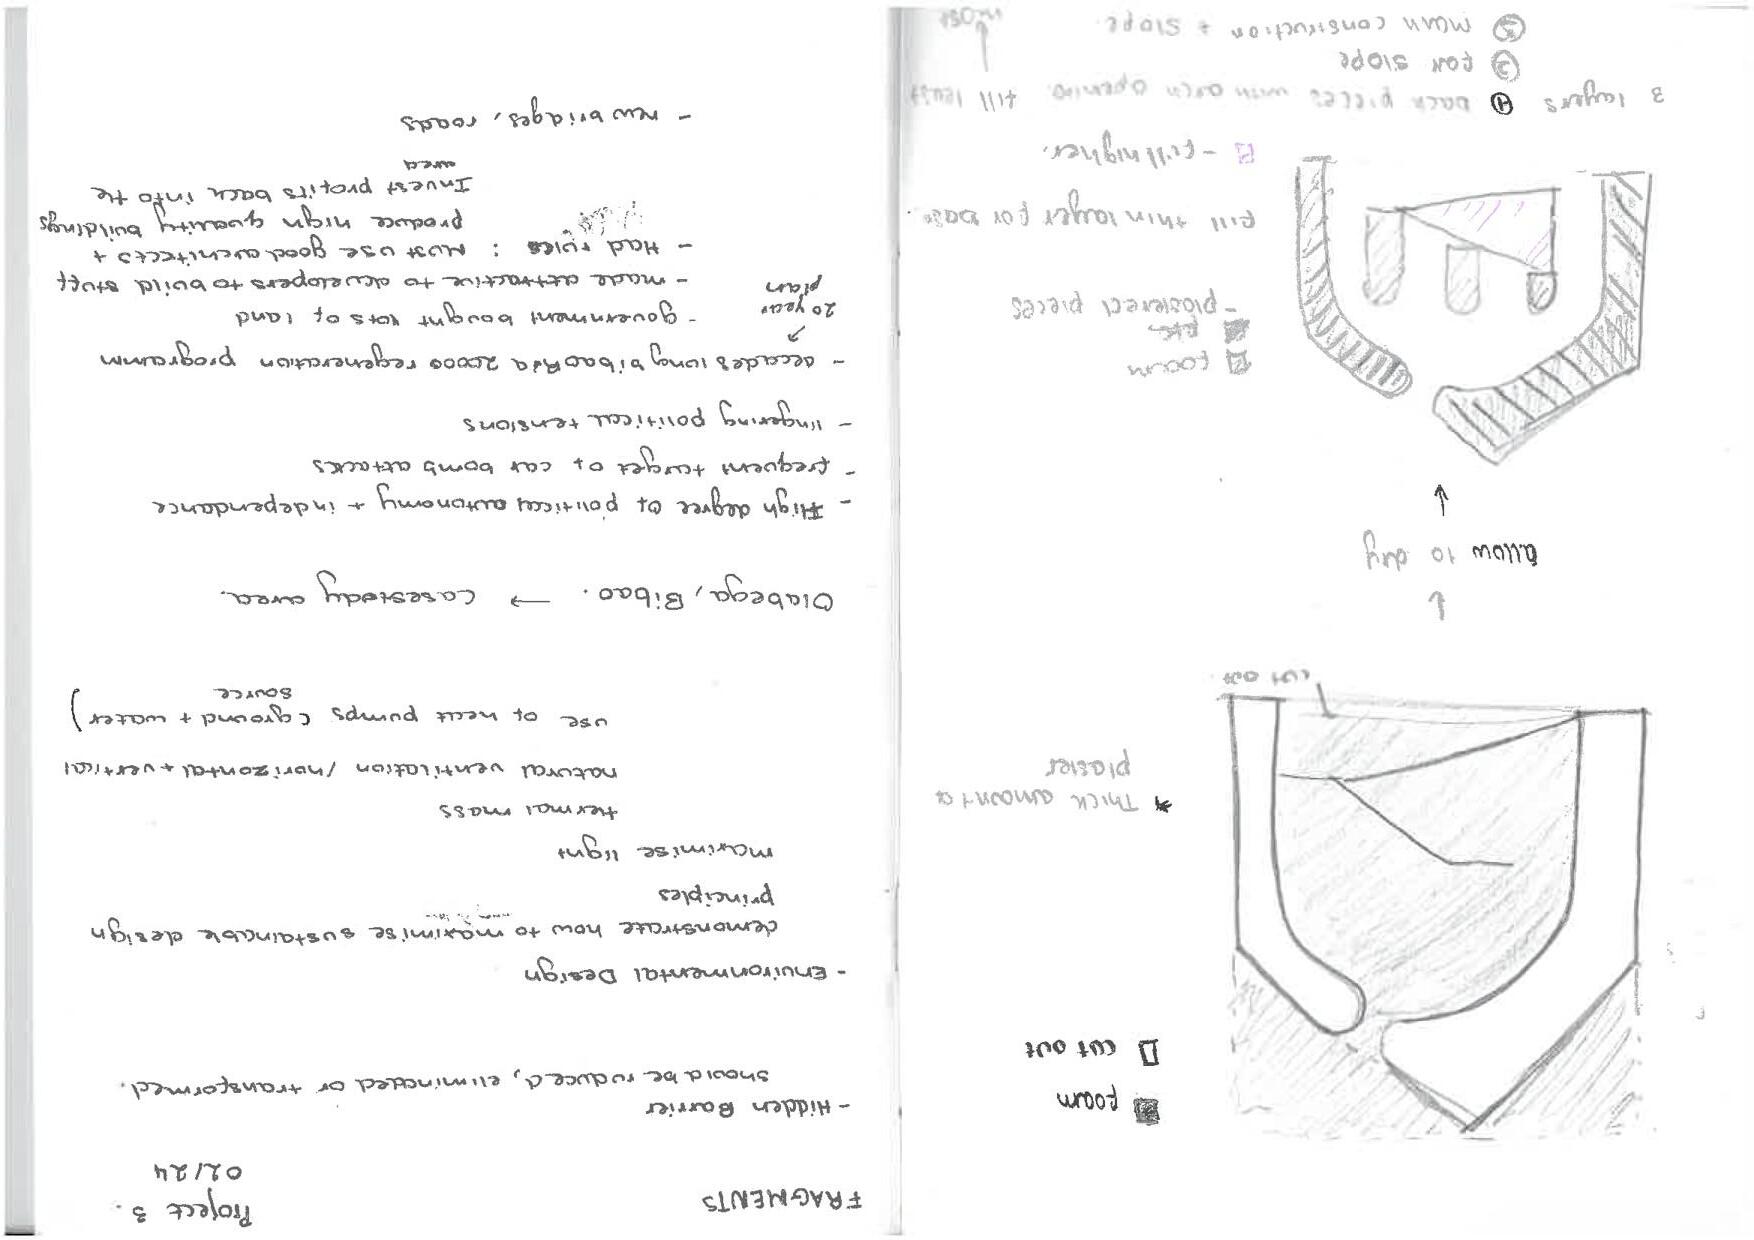 foam
cut out
* Thick amount of
plaster
cut out
allow to dry
foam
etc
- plastered pieces
fill thin layer for base.
- fill higher.
3 layers ① back pieces with arch opening. fill least
② for slope
③ main construction + slope. most
FRAGMENTS
Project 3.
02/24
- Hidden Barrier
should be reduced, eliminated or transformed.
- Environmental Design
demonstrate how to maximise sustainable design
principles
maximise light
thermal mass
natural ventilation /horizontal + vertical
use of heat pumps (ground + water)
source
Olabega, Bibao. → casestudy area.
- High degree of political autonomy + independance
- frequent target of car bomb attacks
- lingering political tensions
- decades long bibao Ria 2000 regeneration programm
20 year
plan
- government bought lots of land
- made attractive to developers to build stuff
- Had rules : Must use good architects +
produce high quality buildings
Invest profits back into the
area
- new bridges, roads